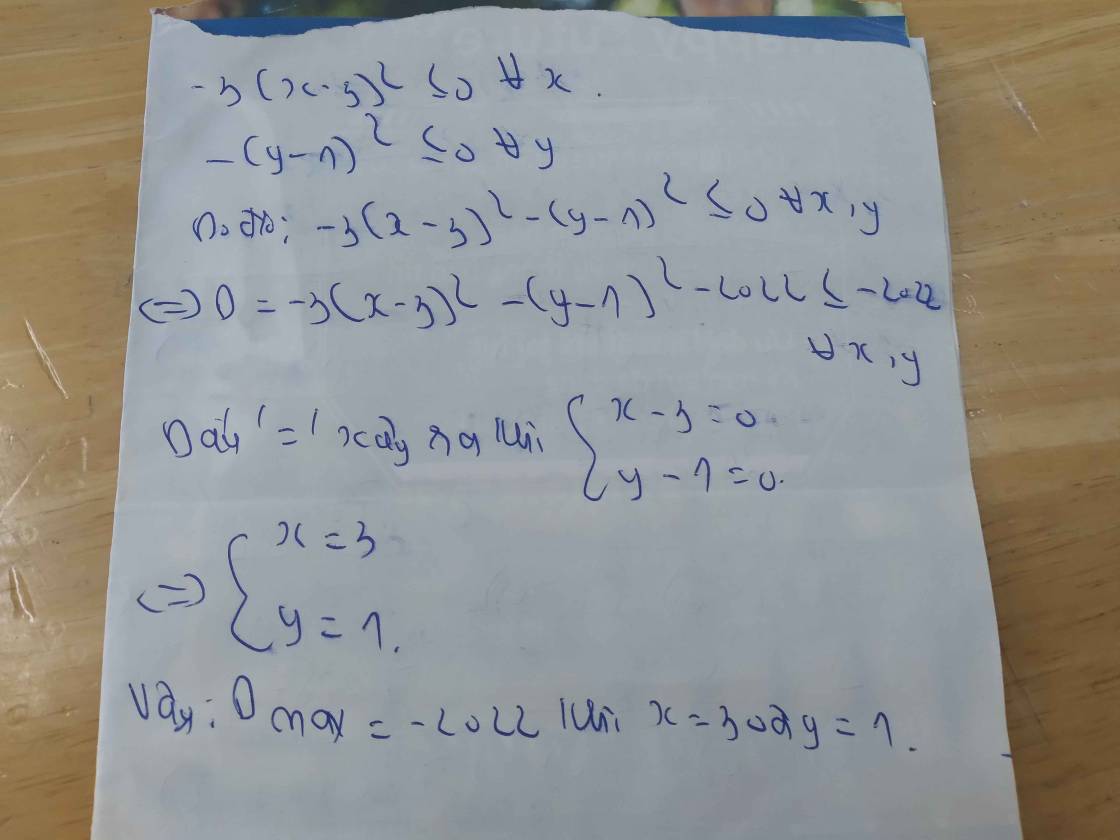 -3(x-3)² ≤0 ∀ x.
-(y-1)² ≤0 ∀ y
-3(x-3)² -(y-1)² ≤0 ∀ x,y
<=> D = -3(x-3)² -(y-1)² -2022 ≤ -2022
∀ x,y
Dấu '=' xảy ra khi { x-3=0
y-1=0.
<=> { x=3
y=1.
Vậy: D max = -2022 khi x=3 và y=1.